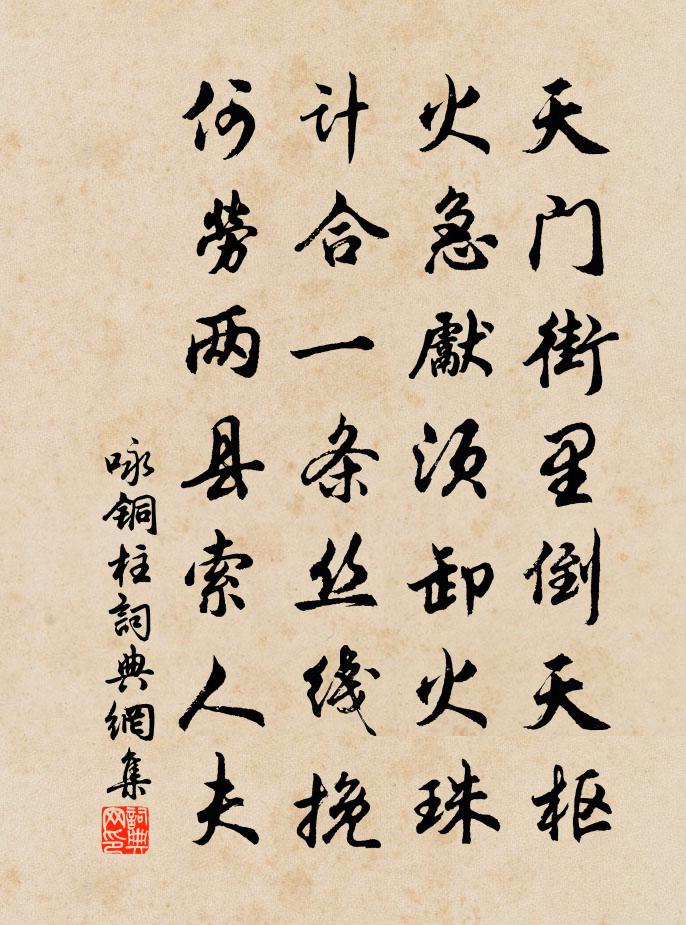 天门街里倒天枢
火急獻须卸火珠
计合一条丝线挽
何勞两县索人夫
咏銅柱詞典網集
詞典网印